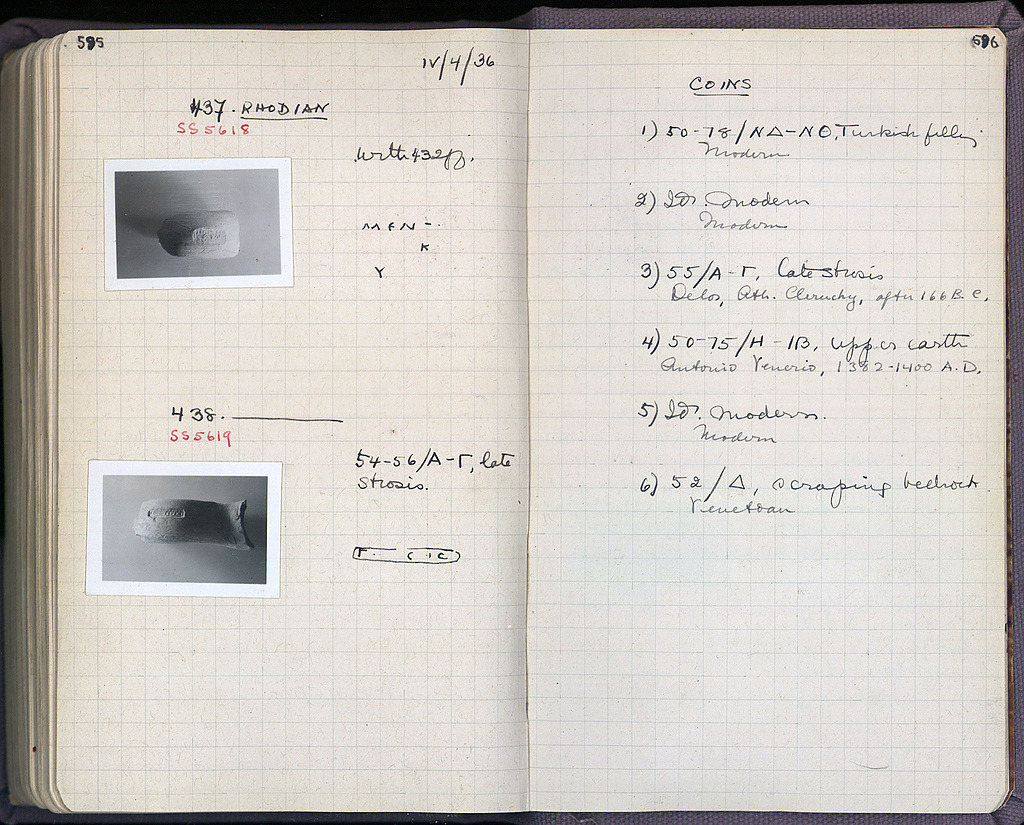 595
IV/4/36
437. RHODIAN
SS5618
With 432ff.
MEN-
K
Y
438.
SS5619
54-56/A-Γ, late
Strosis.
Γ. C I C
596
COINS
1) 50-78/ΝΔ-ΝΘ, Turkish filling
Modern
2) Id. Modern
Modern
3) 55/A-Γ, late strosis
Delos, Ath. Cleruchy, after 166 B.C.
4) 50-75/H-IB, upper earth
Antonio Venerio, 1382-1400 A.D.
5) Id. Modern.
Modern
6) 52/Δ, scraping bedrock
Venetian